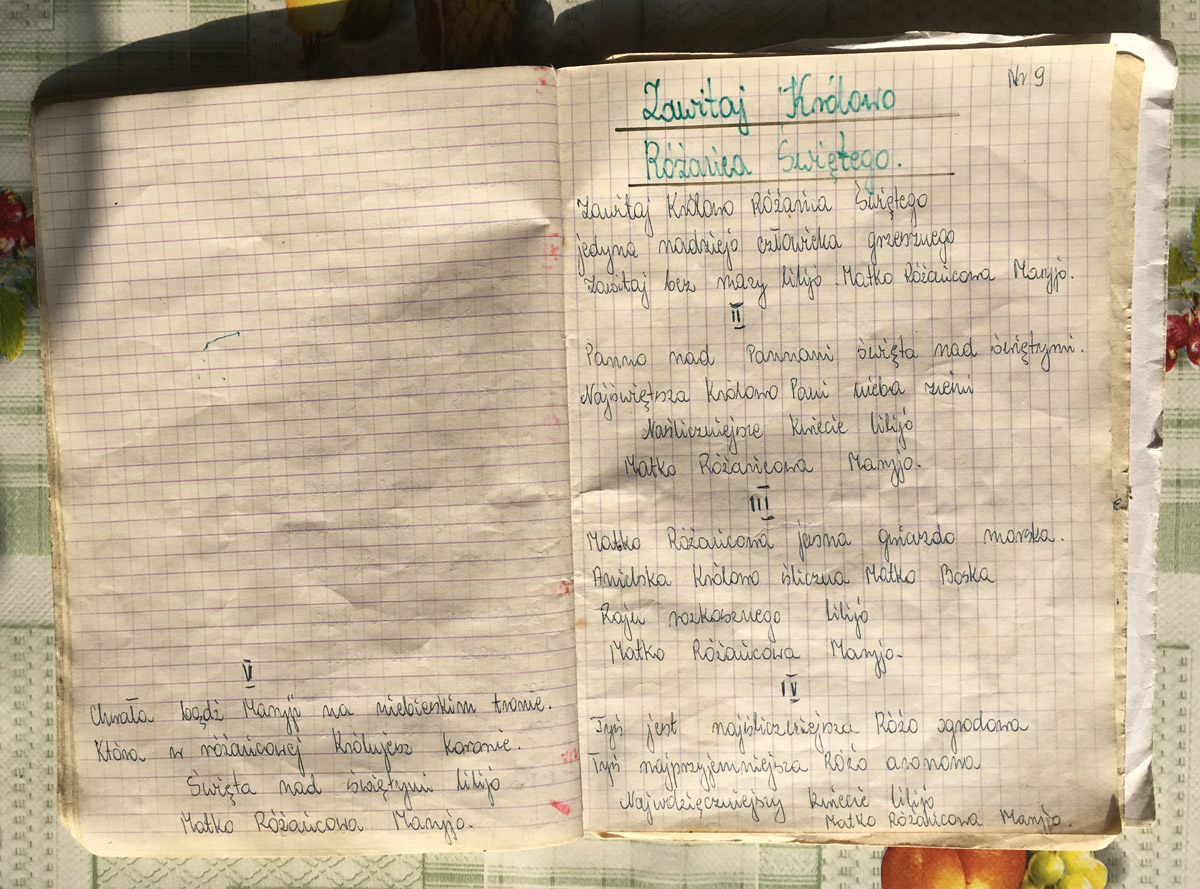 Nr 9
Zawitaj Królowo
Różańca Świętego.
Zawitaj Królowo Różańca Świętego
jedyna nadziejo człowieka grzesznego
Zawitaj bez mazy lilijo Matko Różańcowa Maryjo.
II
Panno nad Pannami święta nad świętymi.
Najświętsza Królowo Pani nieba ziemi
Najśliczniejsze kwiecie lilijo
Matko Różańcowa Maryjo.
III
Matko Różańcowa jasna gwiazdo morska.
Anielska Królowo śliczna Matko Boska
Raju rozkosznego lilijo
Matko Różańcowa Maryjo.
IV
Tyś jest najśliczniejsza Różo ogrodowa
Tyś najprzyjemniejsza Różo aronowa
Najwdzięczniejszy kwiecie lilijo
Matko Różańcowa Maryjo.
V
Chwała bądź Maryji na niebieskim tronie.
Która w różańcowej Królujesz koronie.
Święta nad świętymi lilijo
Matko Różańcowa Maryjo.